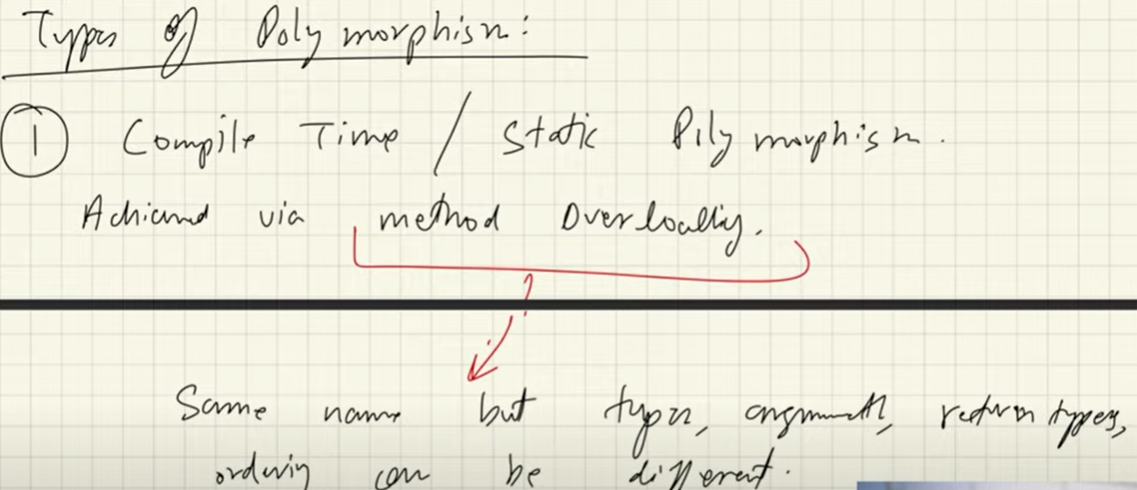 Types of Polymorphism:
① Compile Time / Static Polymorphism.
Achieved via method Overloading.
Same name but types, arguments, return types,
ordering can be different.